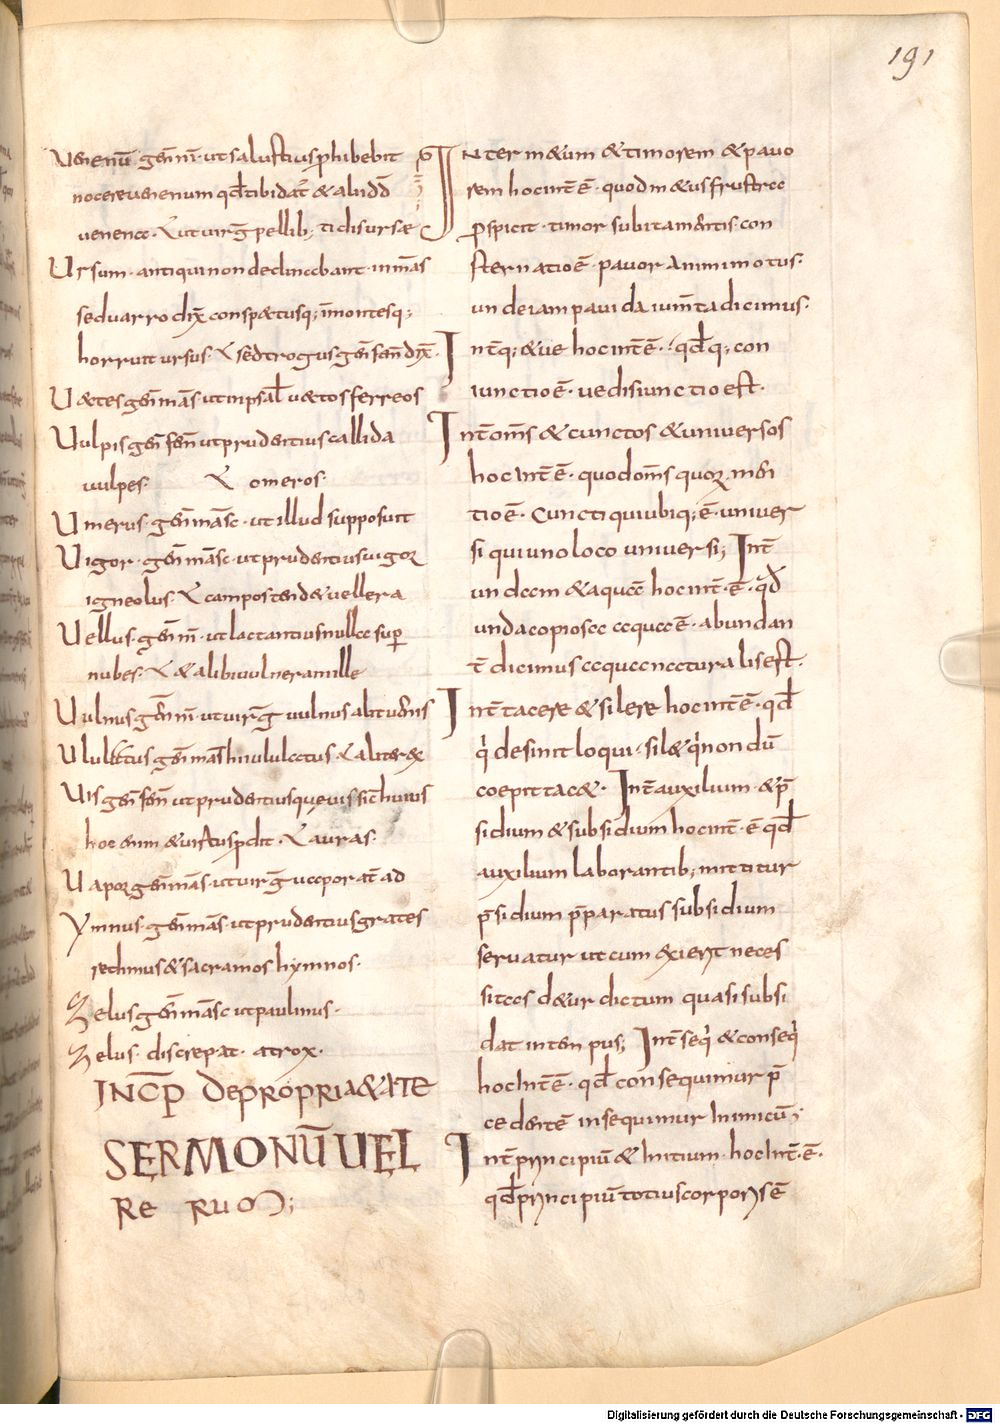 191
Uenenū gen̄ n̄. ut salustius phibebit
nocere uenenum qđ tibi dat̄ & aluidđ
uenena. & ut uirḡ pellib; ti disursæ
Ursum. antiqui non declinabant. in mas̄
sed uarro dix̄ conspætusq; in montesq;
horruit ursus. & sed trogus gen̄ fen̄ dix̄.
U&tes gen̄ mas̄ ut in psal̄ u&tos ferreos
Uulpis gen̄ fen̄ ut prudentius callida
uulpes. & omeros.
Umerus. gen̄ masc̄. ut illud supposuit
Uigor. gen̄ masc̄. ut prudentius uigor
igneolus. & campos tend& uellera
Uellus. gen̄ n̄. ut lactantius nulla sup̄
nubes. & & alibi uulnera mille
Uulnus gen̄ n̄. ut uirḡ uulnus alit uenis
Ululatus gen̄ mas̄ hic ululatus. & aliter &
Uis gen̄ fen̄ ut prudentius quęuis sic huius
hoc enim & uirtus pdit. & auras.
Uapor gen̄ mas̄. ut uirḡ uapor at̄ ad
Ymnus. gen̄ mas̄. ut prudentius grates
rethmus & sacramos hymnos.
Zelus gen̄ masc̄ ut paulinus.
Zelus. discrepat. atrox.
INCP̄ DE PROPRIA&ATE
SERMONŪ UEL
RE RUM;
INter m&um & timorem & pauo
rem hoc int̄ ē. quod m&us frustra
pspicit. timor subita mentis con
sternatio ē. pauor animi motus.
unde iam pauida ium̄ta dicimus.
Int̄ q; & ue hoc int̄ ē. qđ q; con
iunctio ē. ue disiunctio est.
Int̄ om̄s & cunctos & uniuersos
hoc int̄ ē. quod om̄s quor men
tio ē. Cuncti qui ubiq; ē. uniuer
si qui uno loco uniuersi; Int̄
undam & aquā hoc int̄. ē. qđ
unda copiosa aqua ē. abundan
t̄ dicimus aqua naturalis est.
Int̄ tacere & silere hoc int̄ ē. qđ
q̇ desinit loqui. sil& q̇ nondū
coepit tac&. Int̄ auxilium & p̄
sidium & subsidium hoc int̄. ē qđ
auxilium laborantib; mittitur
p̄sidium p̄paratus subsidium
seruatur ut cum exierit neces
sitas d&ur dictum quasi subsi
dat in tem pus; Int̄ seq̇ & conseq̇
hoc int̄ ē. qđ consequimur p̄
cedentē insequimur inimicū;
Int̄ principiū & initium. hoc int̄. ē.
qđ principiū totius corporis ē
Digitalisierung gefördert durch die Deutsche Forschungsgemeinschaft - DFG